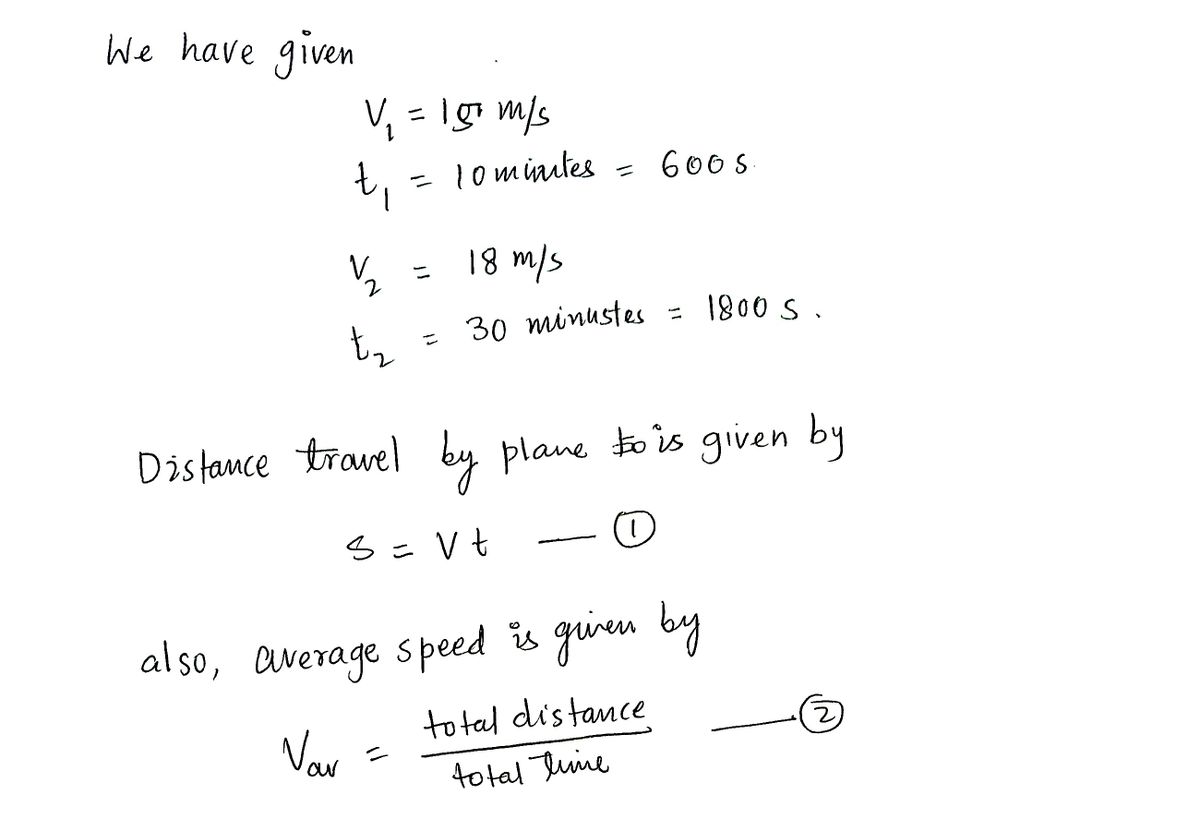 We have given
V₁ = 15 m/s
t₁ = 10 minutes = 600 s.
V₂ = 18 m/s
t₂ = 30 minustes = 1800 s.
Distance travel by plane is given by
s = Vt — ①
also, average speed is given by
Vav = total distance / total time — ②